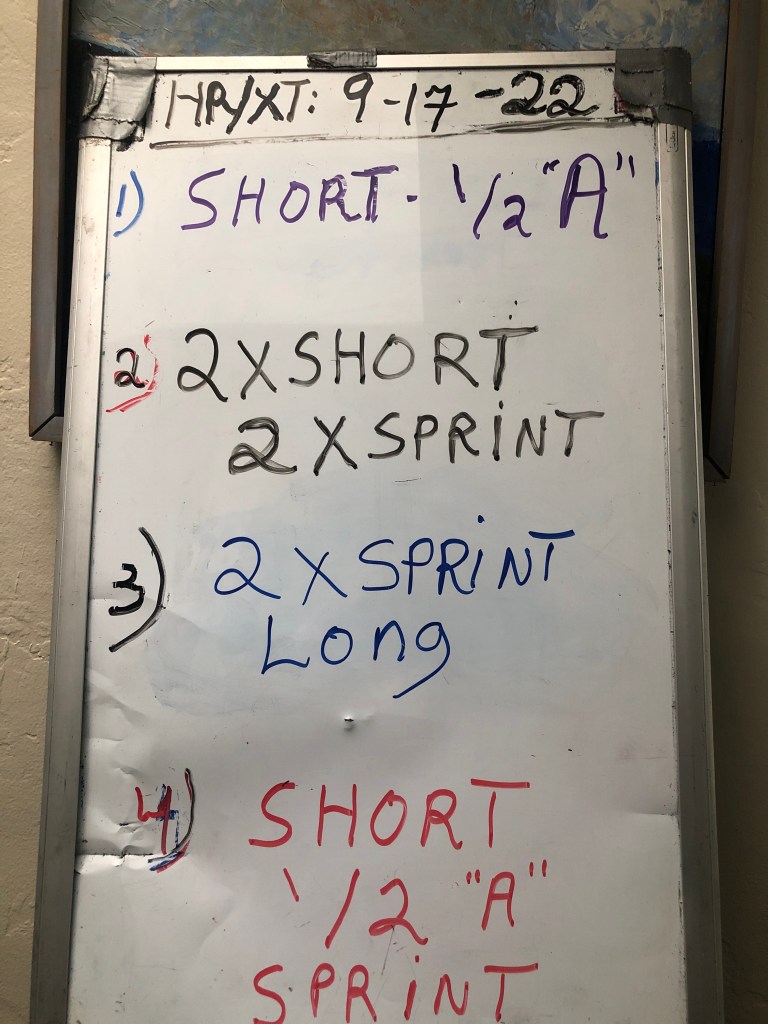 HR/XT: 9-17-22
1) SHORT - 1/2 "A"
2) 2 X SHORT
2 X SPRiNT
3) 2 X SPRiNT
Long
4) SHORT
1/2 "A"
SPRiNT